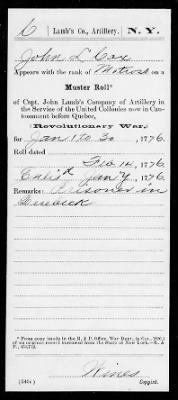 C | Lamb's Co., Artillery. | N. Y.
John L Cox
Appears with the rank of Matross on a
Muster Roll*
of Capt. John Lamb's Company of Artillery in
the Service of the United Colonies now in Can-
tonment before Quebec,
Revolutionary War,
for Jan 1 to 30, 1776.
Roll dated
Feb 14, 1776.
Enlis'd Jan'y 1, 1776.
Remarks: Prisoner in
Quebeck
* From copy made in the R. & P. Office, War Dept., in
of an original record borrowed from the State of New York.—R. &
P.,
Hines
(545) Copyist.